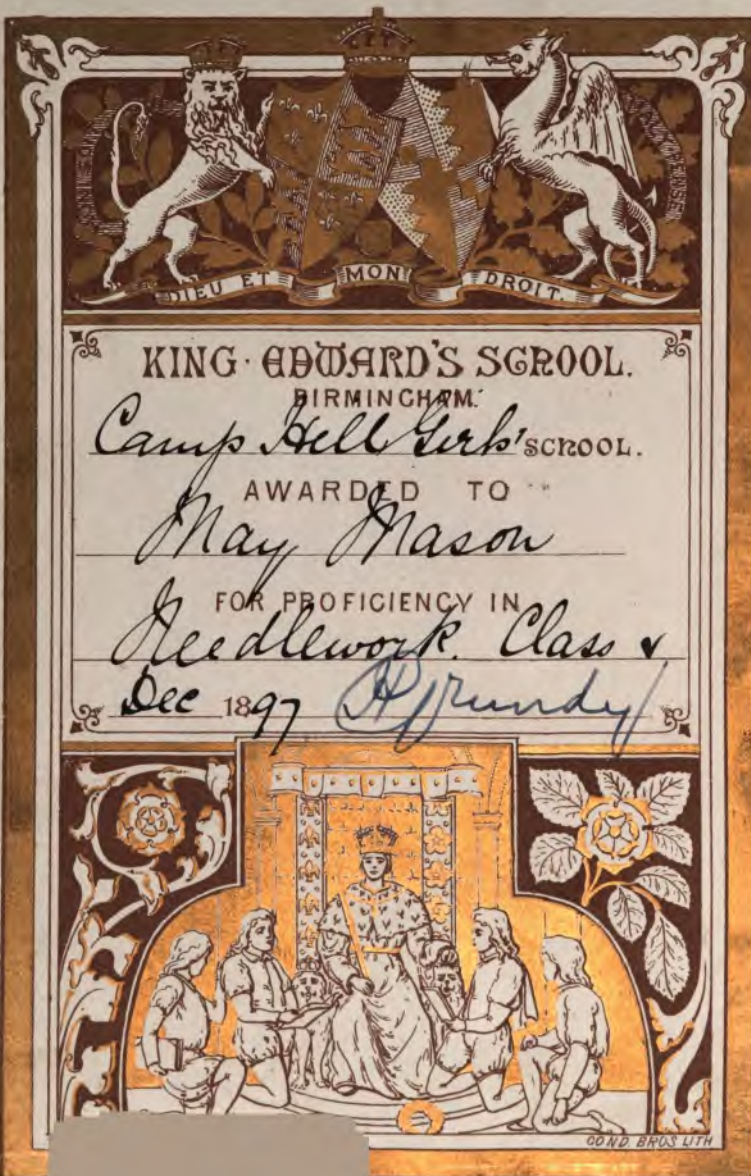 DIEU ET MON DROIT.
KING · EDWARD'S SCHOOL.
BIRMINGHAM.
Camp Hill Girls' SCHOOL.
AWARDED TO
May Mason
FOR PROFICIENCY IN
Needlework. Class V
Dec 1897 Grundy
COND. BROS LITH